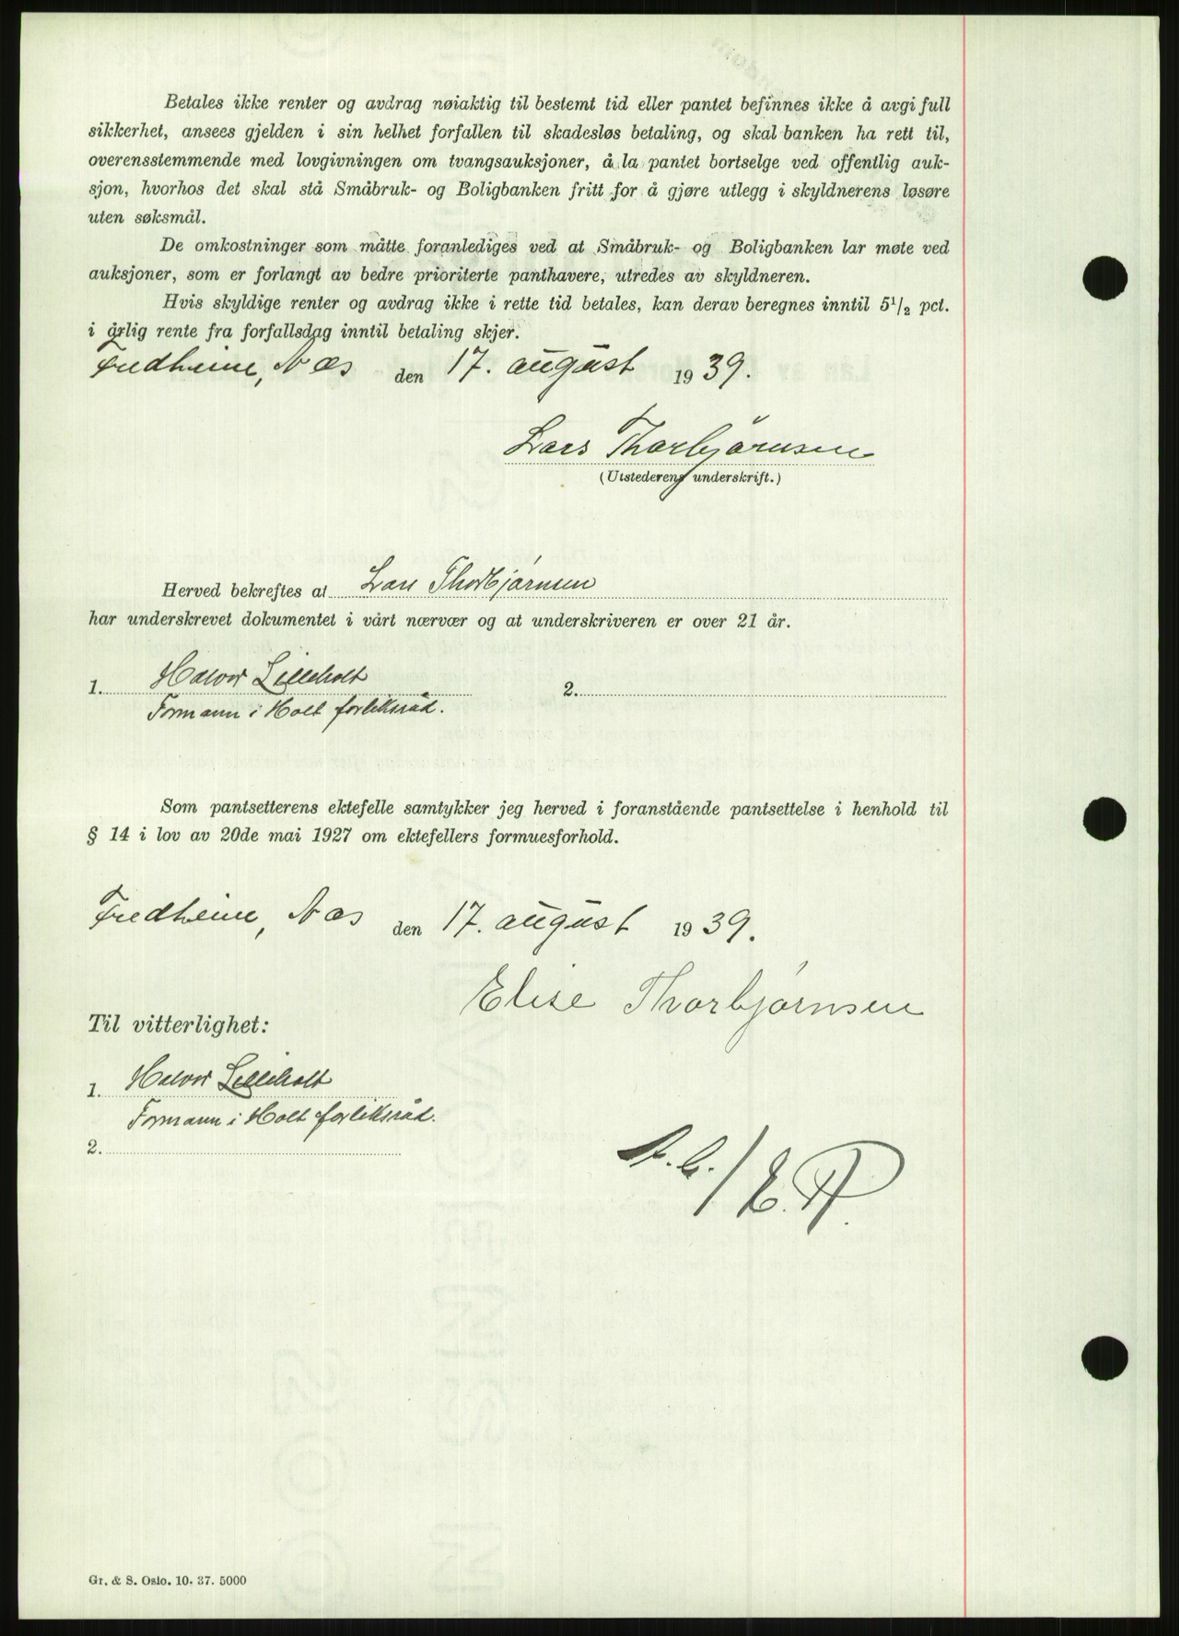 Betales ikke renter og avdrag nøiaktig til bestemt tid eller pantet befinnes ikke å avgi full
sikkerhet, ansees gjelden i sin helhet forfallen til skadesløs betaling, og skal banken ha rett til,
overensstemmende med lovgivningen om tvangsauksjoner, å la pantet bortselge ved offentlig auk-
sjon, hvorhos det skal stå Småbruk- og Boligbanken fritt for å gjøre utlegg i skyldnerens løsøre
uten søksmål.
De omkostninger som måtte foranlediges ved at Småbruk- og Boligbanken lar møte ved
auksjoner, som er forlangt av bedre prioriterte panthavere, utredes av skyldneren.
Hvis skyldige renter og avdrag ikke i rette tid betales, kan derav beregnes inntil 5 1/2 pct.
i årlig rente fra forfallsdag inntil betaling skjer.
Fredheim, Næs den 17. august 1939.
Lars Thorbjørnsen
(Utstederens underskrift.)
Herved bekreftes at Lars Thorbjørnsen
har underskrevet dokumentet i vårt nærvær og at underskriveren er over 21 år.
1. Halvor Lilleholt 2.
Formann i Holt forliksråd.
Som pantsetterens ektefelle samtykker jeg herved i foranstående pantsettelse i henhold til
§ 14 i lov av 20de mai 1927 om ektefellers formuesforhold.
Fredheim, Næs den 17. august 1939.
Elise Thorbjørnsen
Til vitterlighet:
1. Halvor Lilleholt
Formann i Holt forliksråd.
2.
Gr. & S. Oslo. 10. 37. 5000